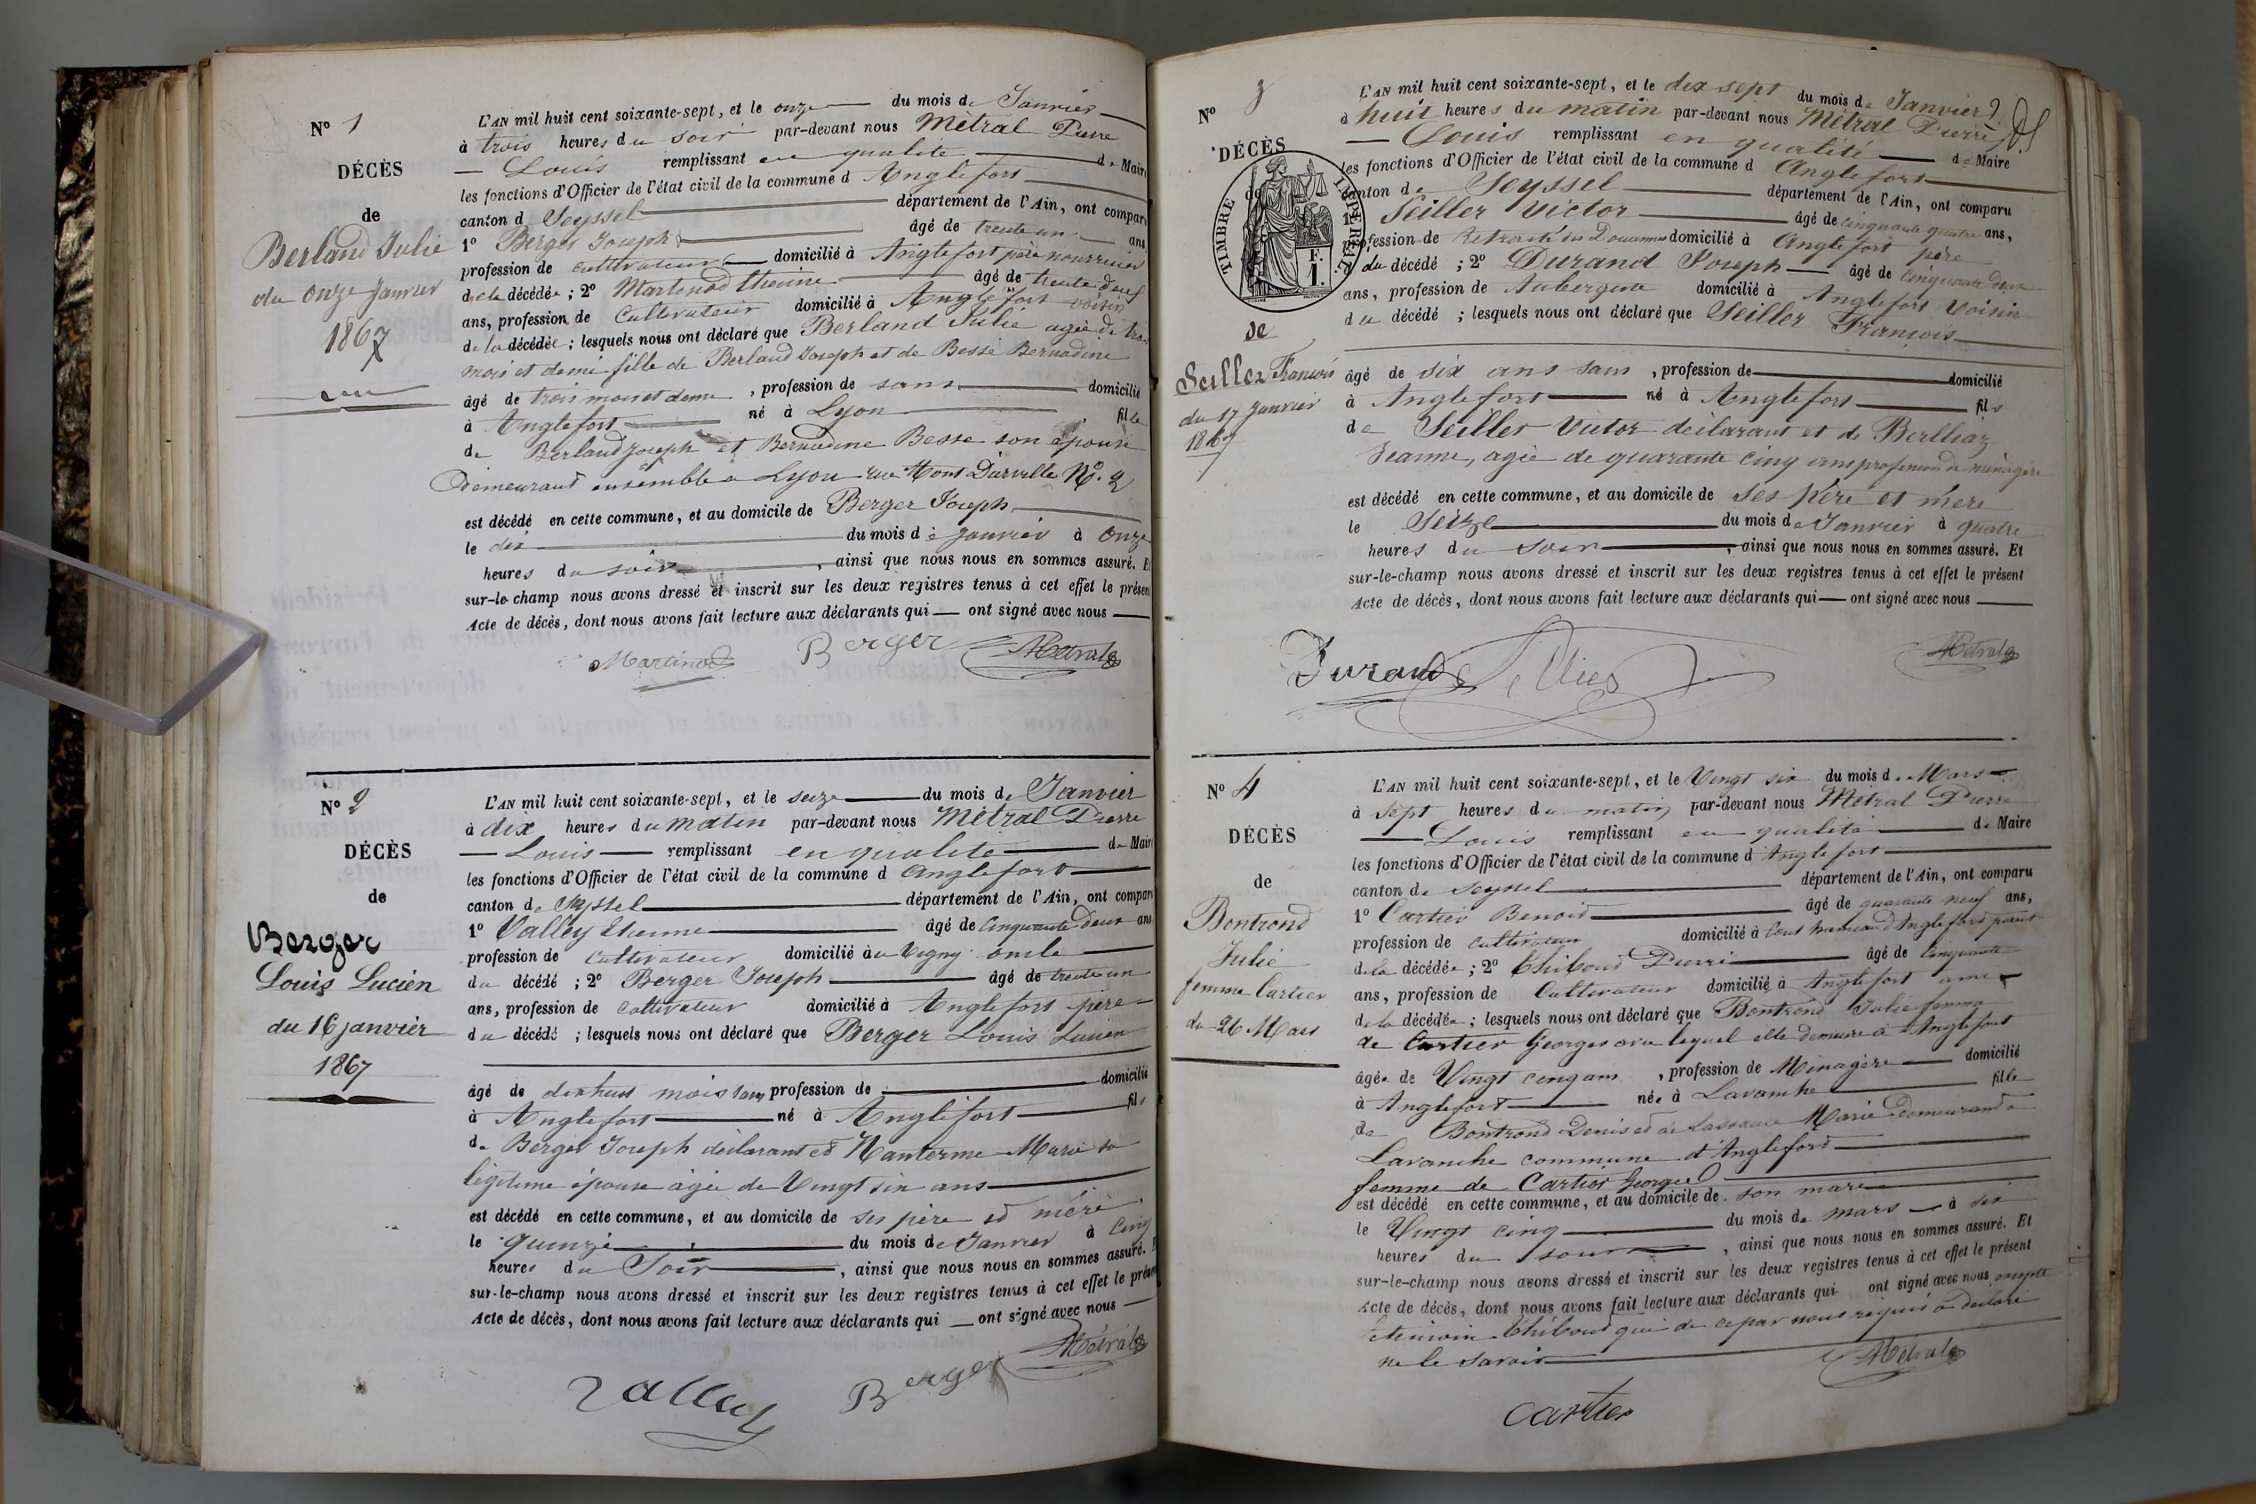 Nº 1
DÉCÈS
de
Berland Julie
du onze janvier
1867
L'AN mil huit cent soixante-sept, et le onze du mois de Janvier
à trois heures du soir par-devant nous Métral Pierre
Louis remplissant en qualité de Maire
les fonctions d'Officier de l'état civil de la commune d Anglefort
canton d Seyssel département de l'Ain, ont comparu
1º Berger Joseph âgé de trente un ans
profession de cultivateur domicilié à Anglefort père nourricier
de la décédée ; 2º Martinod Etienne âgé de trente deux
ans, profession de Cultivateur domicilié à Anglefort voisin
de la décédée ; lesquels nous ont déclaré que Berland Julie agée de trois
mois et demi fille de Berland Joseph et de Besse Bernadine
âgé de trois mois et demi , profession de sans domicilié
à Anglefort né à Lyon fille
de Berland Joseph et Bernadine Besse son épouse
demeurant ensemble à Lyon rue Mont Durville Nº. 2
est décédé en cette commune, et au domicile de Berger Joseph
le dix du mois de janvier à onze
heures du soir , ainsi que nous nous en sommes assuré. Et
sur-le-champ nous avons dressé et inscrit sur les deux registres tenus à cet effet le présent
Acte de décès, dont nous avons fait lecture aux déclarants qui ont signé avec nous
Martinod Berger Métral
Nº 2
DÉCÈS
de
Berger
Louis Lucien
du 16 janvier
1867
L'AN mil huit cent soixante-sept, et le seize du mois de Janvier
à dix heures du matin par-devant nous Métral Pierre
Louis remplissant en qualité de Maire
les fonctions d'Officier de l'état civil de la commune d Anglefort
canton de Seyssel département de l'Ain, ont comparu
1º Valley Etienne âgé de Cinquante deux ans
profession de Cultivateur domicilié à au Vigny oncle
du décédé ; 2º Berger Joseph âgé de trente un
ans, profession de Cultivateur domicilié à Anglefort père
du décédé ; lesquels nous ont déclaré que Berger Louis Lucien
âgé de dix huit mois sans profession de domicilié
à Anglefort né à Anglefort fils
de Berger Joseph déclarant et Nanterme Marie sa
légitime épouse agée de Vingt six ans
est décédé en cette commune, et au domicile de ses père et mère
le quinze du mois de Janvier à Cinq
heures du Soir , ainsi que nous nous en sommes assuré. Et
sur-le-champ nous avons dressé et inscrit sur les deux registres tenus à cet effet le présent
Acte de décès, dont nous avons fait lecture aux déclarants qui ont signé avec nous
Métral
Valley Berger
Nº 3
DÉCÈS
de
TIMBRE IMPERIAL
1 F.
de
Seiller Francois
du 17 Janvier
1867
L'AN mil huit cent soixante-sept, et le dix sept du mois de Janvier
à huit heures du matin par-devant nous Métral Pierre
Louis remplissant en qualité de Maire
les fonctions d'Officier de l'état civil de la commune d Anglefort
canton de Seyssel département de l'Ain, ont comparu
1º Seiller Victor âgé de cinquante quatre ans,
profession de Retraité des Douanes domicilié à Anglefort père
du décédé ; 2º Durand Joseph âgé de Cinquante deux
ans, profession de Aubergiste domicilié à Anglefort Voisin
du décédé ; lesquels nous ont déclaré que Seiller François
âgé de six ans sans , profession de domicilié
à Anglefort né à Anglefort fils
de Seiller Victor déclarant et de Berlliaz
Jeanne, agée de quarante cinq ans profession de ménagère
est décédé en cette commune, et au domicile de ses père et mère
le Seize du mois de Janvier à quatre
heures du soir , ainsi que nous nous en sommes assuré. Et
sur-le-champ nous avons dressé et inscrit sur les deux registres tenus à cet effet le présent
Acte de décès, dont nous avons fait lecture aux déclarants qui ont signé avec nous
Durand Métral
Nº 4
DÉCÈS
de
Bontrond
Julie
femme Cartier
du 26 Mars
L'AN mil huit cent soixante-sept, et le Vingt six du mois de Mars
à sept heures du matin par-devant nous Métral Pierre
Louis remplissant en qualité de Maire
les fonctions d'Officier de l'état civil de la commune d Anglefort
canton de Seyssel département de l'Ain, ont comparu
1º Cartier Benoit âgé de quarante neuf ans,
profession de cultivateur domicilié à hameau d'Anglefort parent
de la décédée ; 2º Thiboud Pierre âgé de Cinquante
ans, profession de Cultivateur domicilié à Anglefort ami
de la décédée ; lesquels nous ont déclaré que Bontrond Julie femme
de Cartier Georges avec lequel elle demeure à Anglefort
âgée de Vingt cinq ans , profession de Ménagère domicilié
à Anglefort née à Lavanche fille
de Bontrond Denis et de Marie demeurant à
Lavanche commune d'Anglefort
femme de Cartier Georges
est décédé en cette commune, et au domicile de son mari
le Vingt cinq du mois de mars à six
heures du soir , ainsi que nous nous en sommes assuré. Et
sur-le-champ nous avons dressé et inscrit sur les deux registres tenus à cet effet le présent
Acte de décès, dont nous avons fait lecture aux déclarants qui ont signé avec nous excepté
le témoin Thiboud qui de ce par nous requis a déclaré
ne le savoir
Métral
Cartier